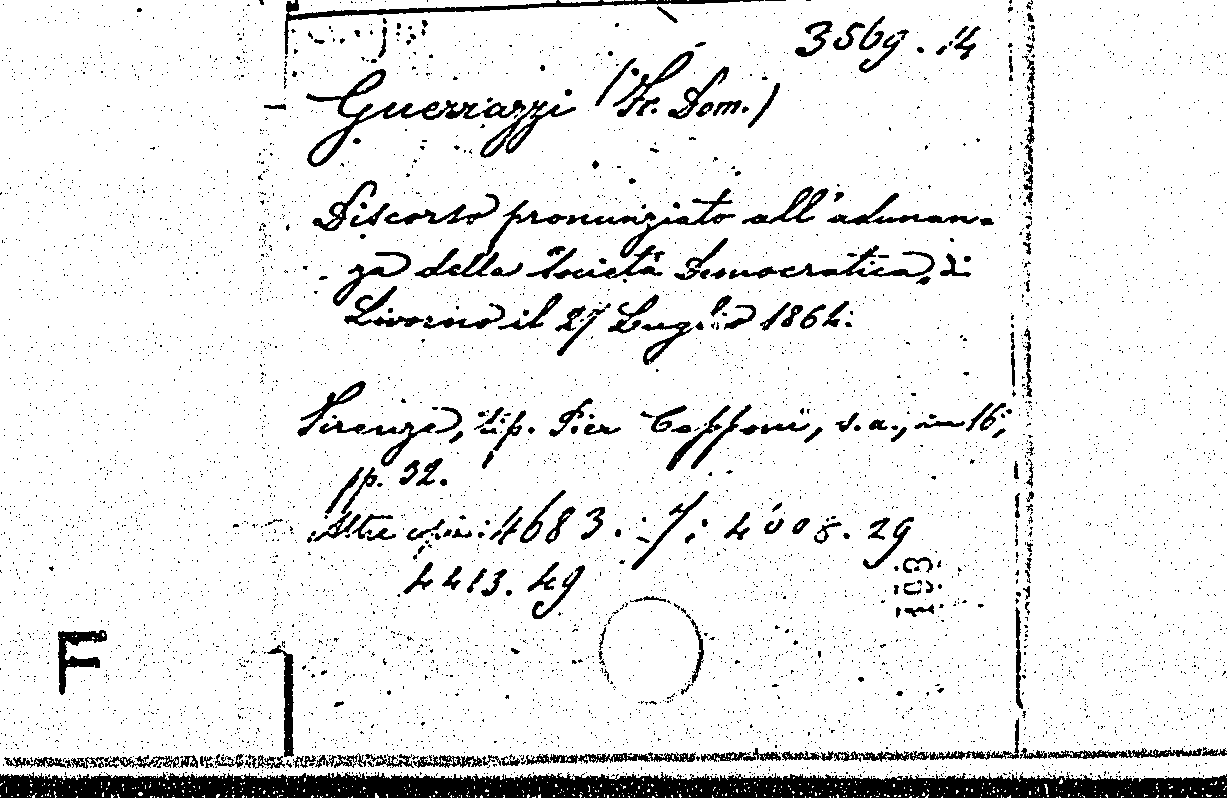 3569.14
Guerrazzi (Fr. Dom.)
Discorso pronunziato all'adunan-
za della Società Democratica di
Livorno il 27 Luglio 1864.
Firenze, tip. Pier Capponi, s.a., in 16,
pp. 32.
Altre copie: 4683.7; 4008.29
4413.49
103
F